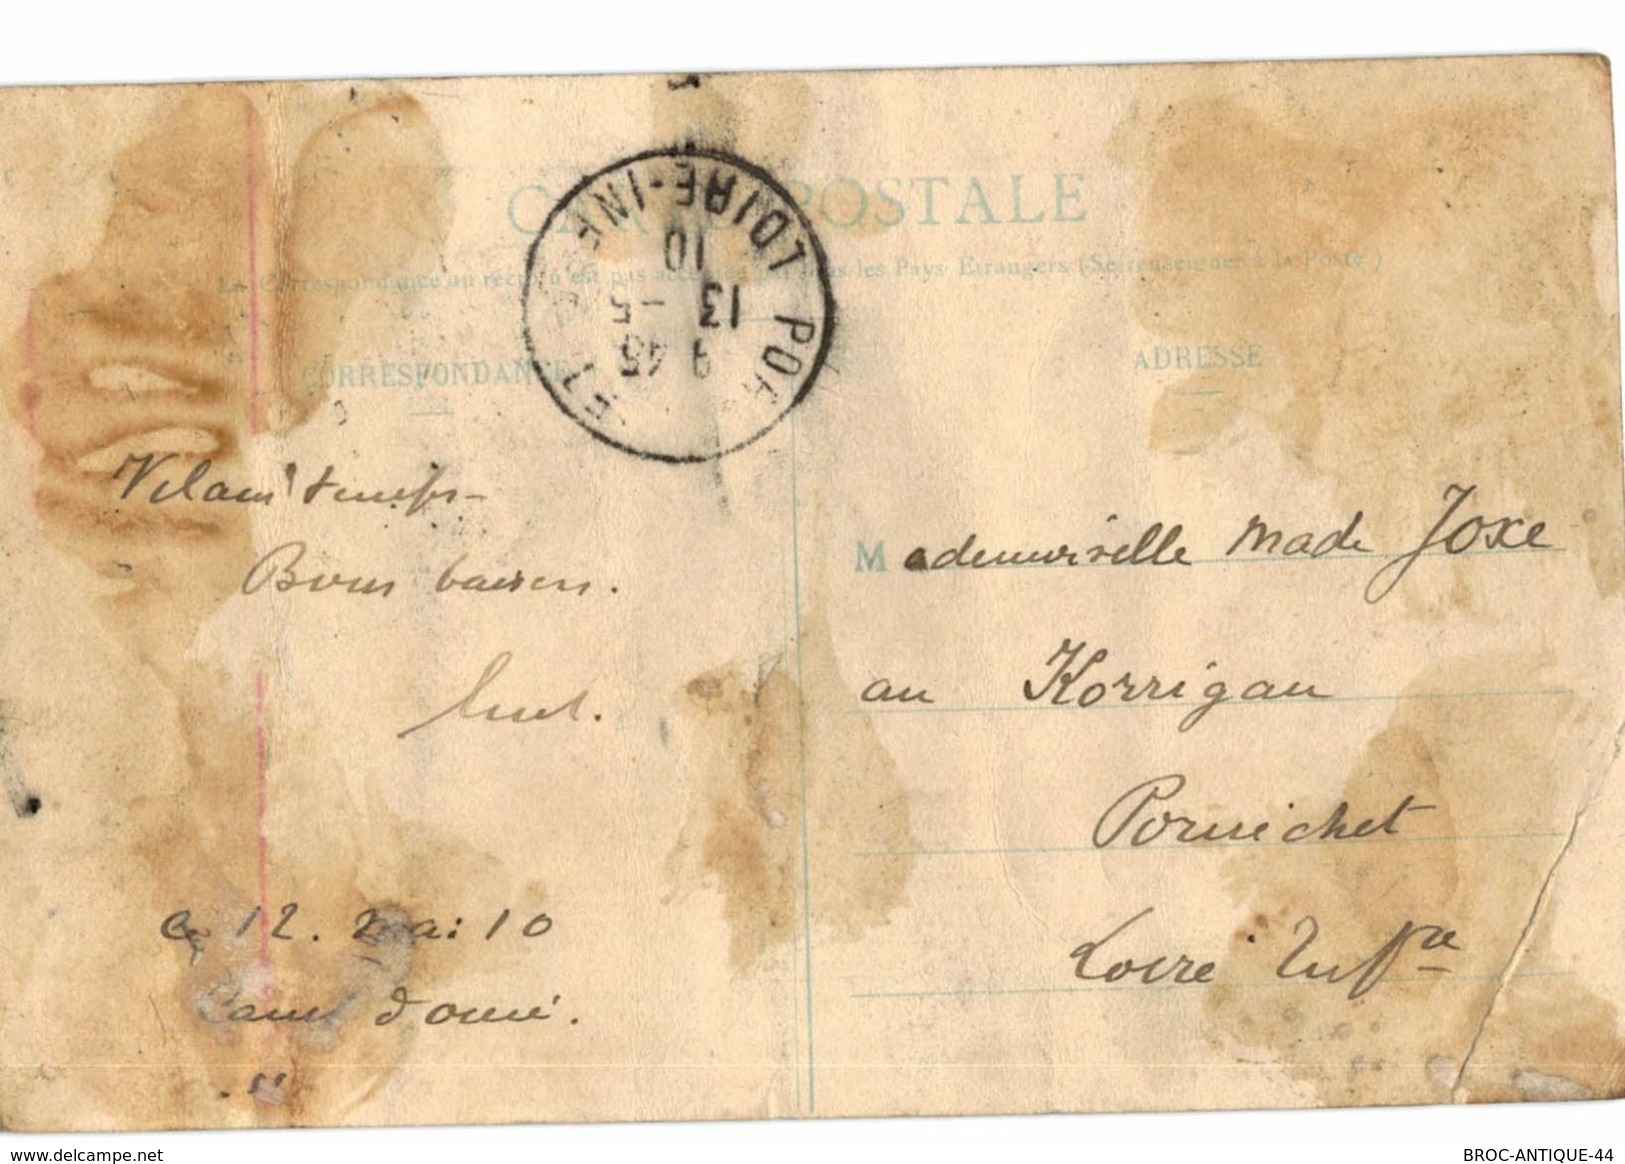 CARTE POSTALE
La Correspondance au recto n'est pas acceptée par tous les Pays Etrangers (Se renseigner à la Poste)
CORRESPONDANCE
ADRESSE
LOIRE-INF
10
13 -5
9 45
Vilain temps-
Bons baisers.
ce 12. mai 10
Mademoiselle Made Joxe
au Korrigan
Pornichet
Loire Infre
www.delcampe.net
BROC-ANTIQUE-44